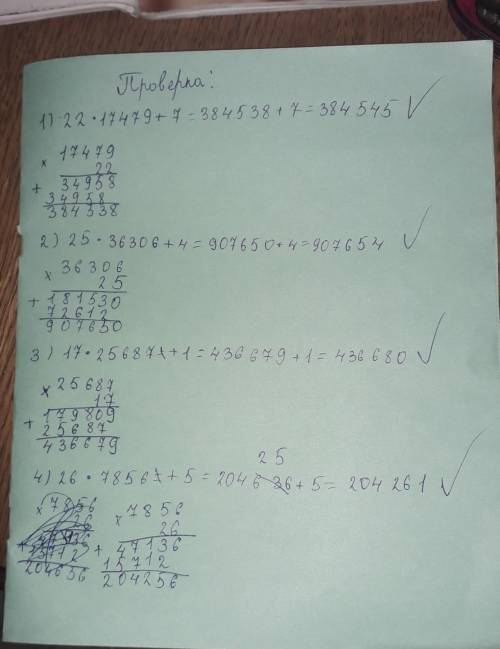 Проверка:
1) 22 · 17479 + 7 = 384538 + 7 = 384545 ✓
× 17479
22
+ 34958
34958
384538
2) 25 · 36306 + 4 = 907650 + 4 = 907654 ✓
× 36306
25
+ 181530
72612
907650
3) 17 · 25687 + 1 = 436679 + 1 = 436680 ✓
× 25687
17
+ 179809
25687
436679
25
4) 26 · 7856 + 5 = 204636 + 5 = 204261 ✓
× 7856
26
+ 47136
15712
204256
× 7856
26
15712
204636